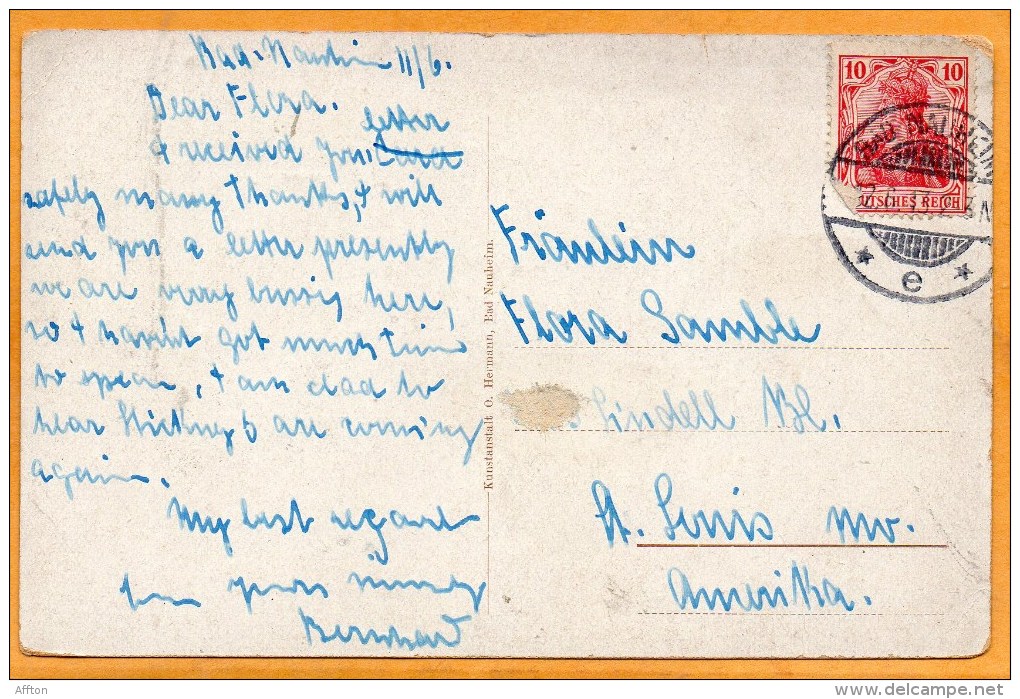 Bad-Nauheim 11/6.
Dear Flora.
letter
I received your card
safely many thanks, I will
send you a letter presently
we are very bussy here,
so I havent got much time
to spear, I am clad to
hear Stickneys are coming
again.
My best regard
from yours sincerely
Bernhard
Kunstanstalt O. Hermann, Bad Nauheim.
10 10
DEUTSCHES REICH
BAD NAUHEIM
12.6.13. 2-3N
* e *
Fräulein
Flora Samble
Lindell Bl.
St. Louis Mo.
Amerika.
Affton
delcampe.net